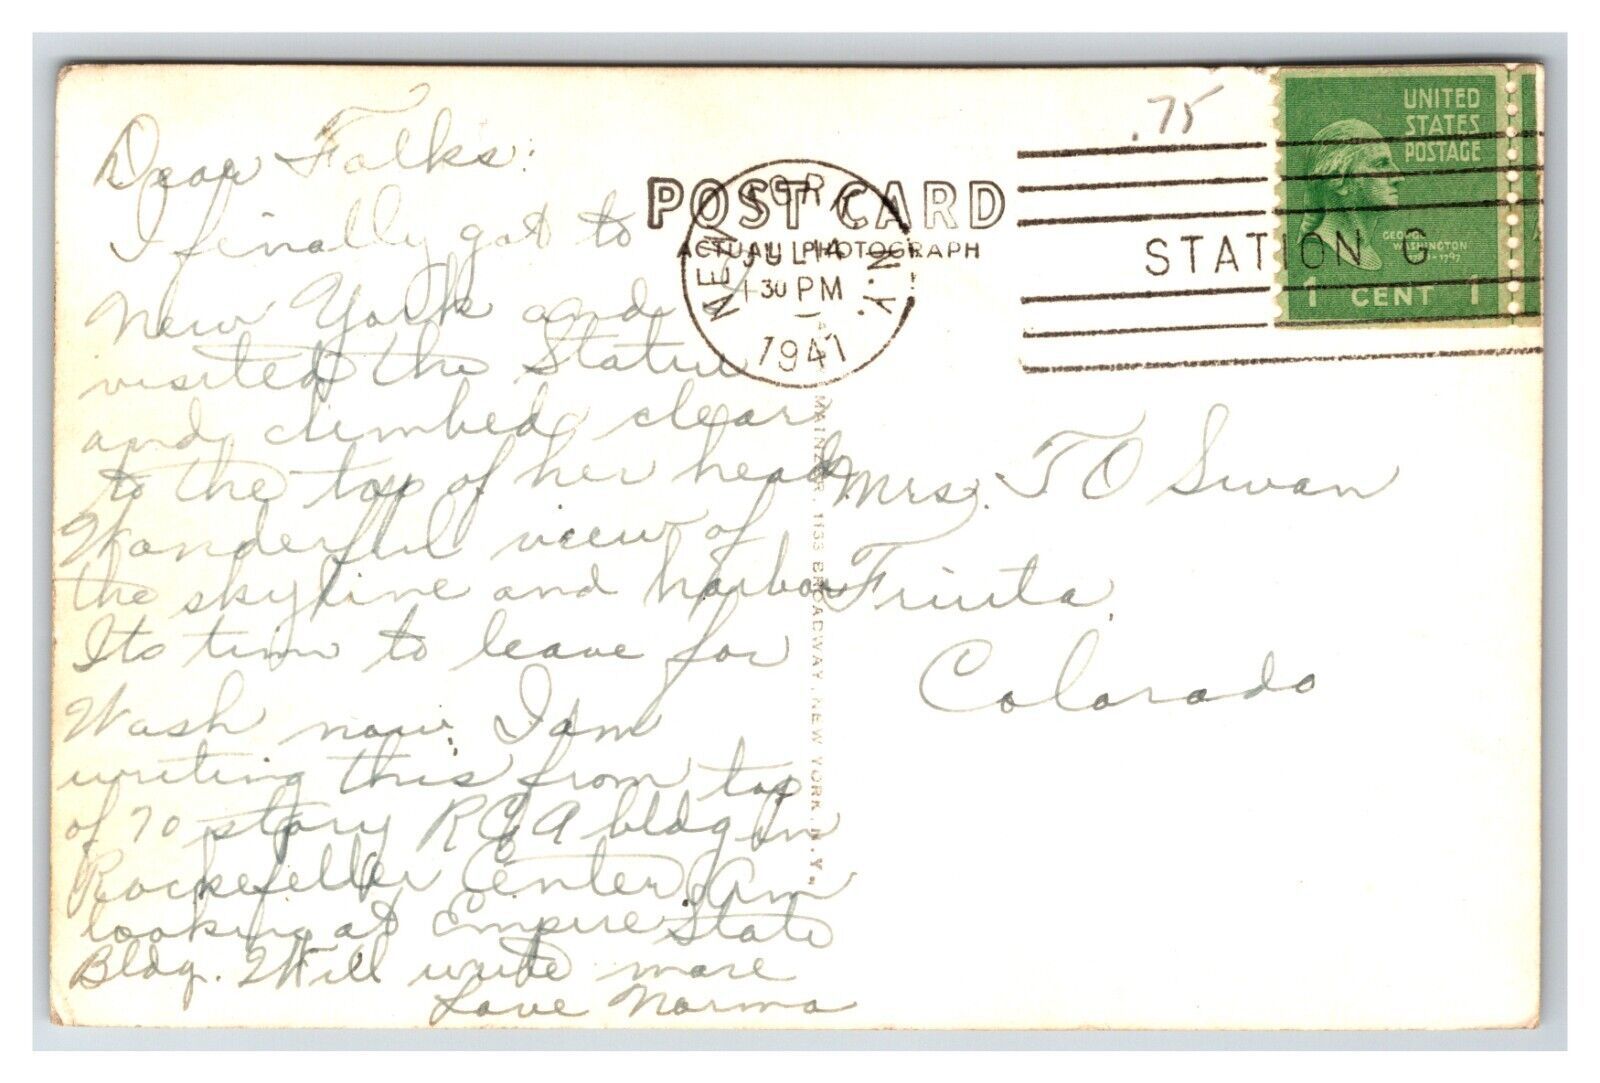 Dear Folks:
I finally got to
New York and
visited the Statue
and climbed clear
to the top of her head
Wonderful view of
the skyline and harbor
Its time to leave for
Wash now. I am
writing this from top
of 70 story RCA bldg in
Rockefeller Center. Am
looking at Empire State
Bldg. Will write more
Love Norma
.75
POST CARD
ACTUAL PHOTOGRAPH
NEW YORK, N.Y.
JUL 14
1 30 PM
1941
STATION G
UNITED
STATES
POSTAGE
GEORGE
WASHINGTON
1 CENT 1
MAINZER, 1133 BROADWAY, NEW YORK, N.Y.
Mrs. T O Swan
Fruita,
Colorado